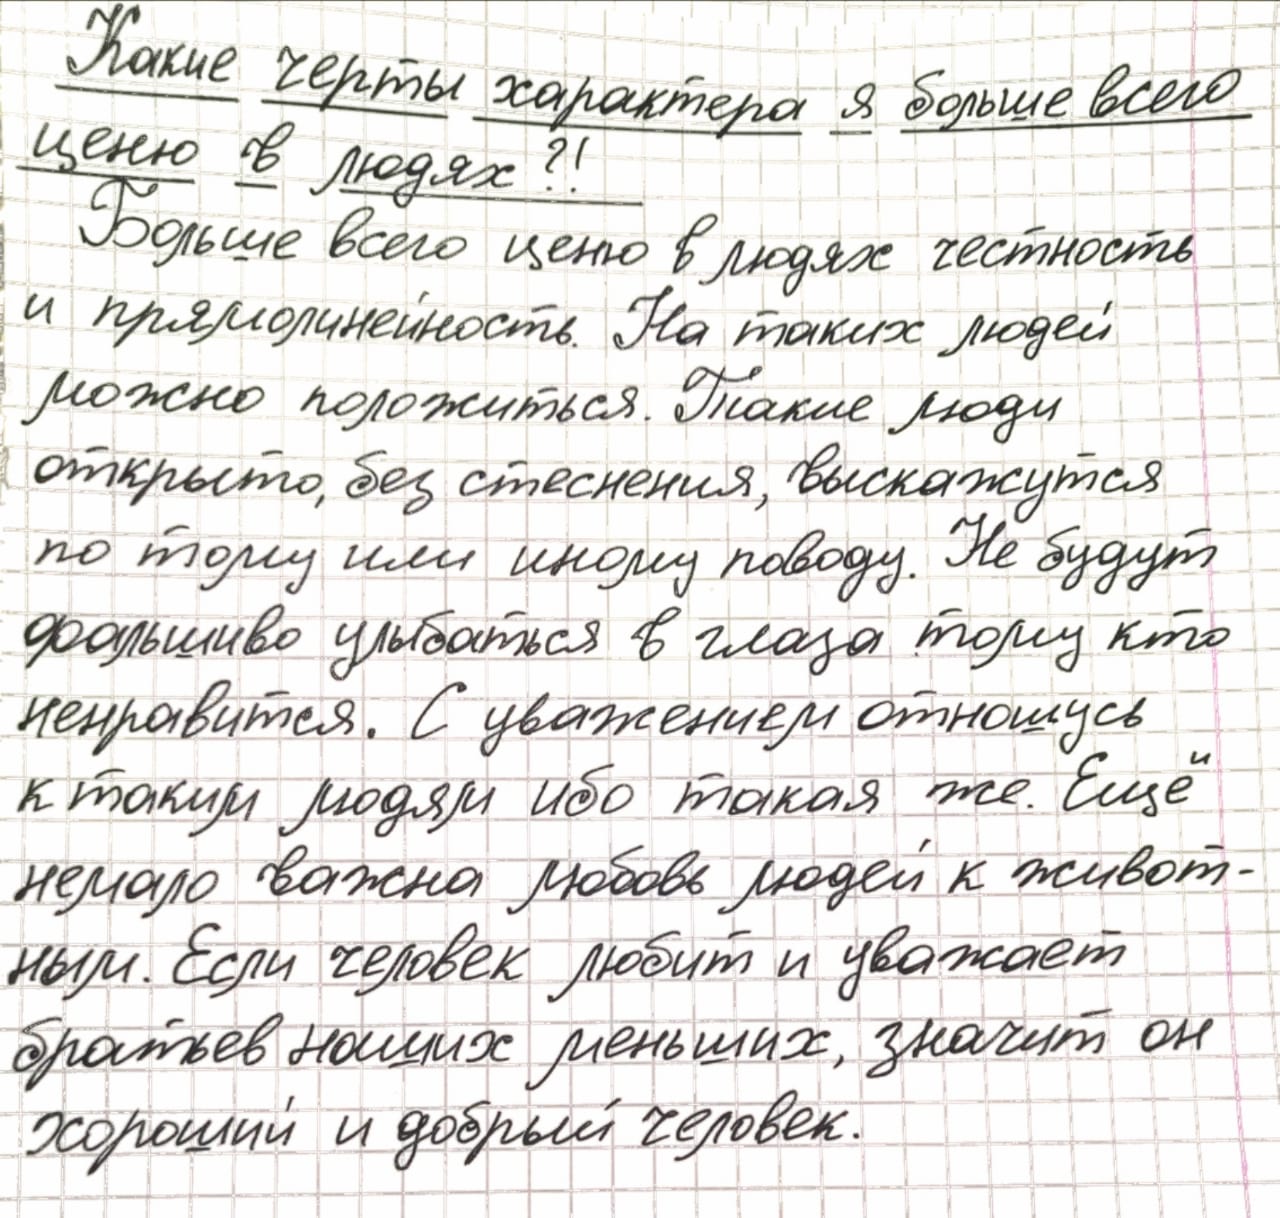 Какие черты характера я больше всего
ценю в людях?!
Больше всего ценю в людях честность
и прямолинейность. На таких людей
можно положиться. Такие люди
открыто, без стеснения, выскажутся
по тому или иному поводу. Не будут
фальшиво улыбаться в глаза тому кто
ненравится. С уважением отношусь
к таким людям ибо такая же. Ещё
немало важна любовь людей к живот-
ным. Если человек любит и уважает
братьев наших меньших, значит он
хороший и добрый человек.